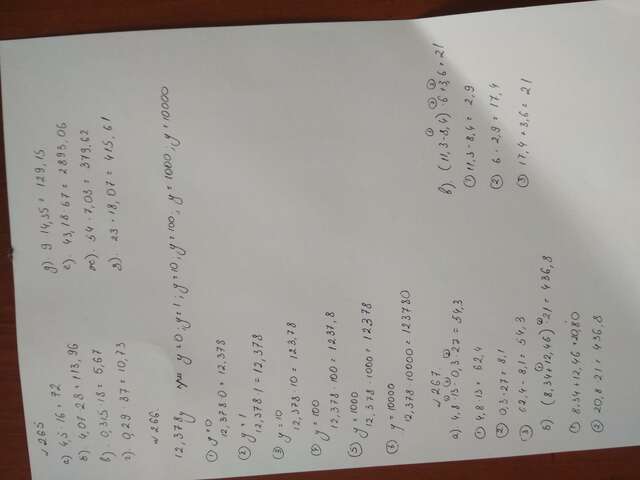 №265
а) 4,5 · 16 = 72
б) 4,07 · 28 = 113,96
в) 0,315 · 18 = 5,67
г) 0,29 · 37 = 10,73
д) 9 · 14,35 = 129,15
е) 43,18 · 67 = 2893,06
ж) 54 · 7,03 = 379,62
з) 23 · 18,07 = 415,61
№266
12,378y при y=0; y=1; y=10; y=100; y=1000; y=10000
① y=0
12,378·0 = 12,378
② y=1
12,378·1 = 12,378
③ y=10
12,378·10 = 123,78
④ y=100
12,378·100 = 1237,8
⑤ y=1000
12,378·1000 = 12378
⑥ y=10000
12,378·10000 = 123780
№267
а) 4,8·13-0,3·27 = 54,3
① 4,8·13 = 62,4
② 0,3·27 = 8,1
③ 62,4-8,1 = 54,3
б) (8,34+12,46)·21 = 436,8
① 8,34+12,46 = 20,80
② 20,8·21 = 436,8
в) (11,3-8,4)·6+3,6 = 21
① 11,3-8,4 = 2,9
② 6·2,9 = 17,4
③ 17,4+3,6 = 21